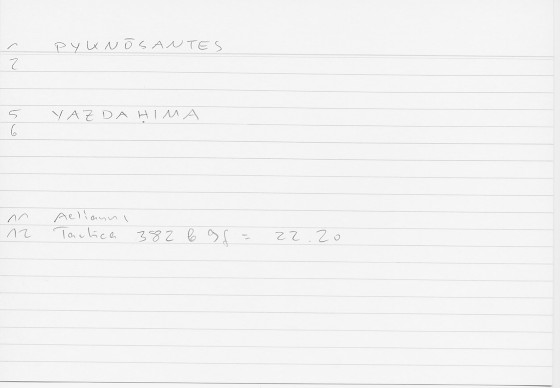 1 PYKNŌSANTES
2
5 YAZDAḤIMA
6
11 Aelianus
12 Tactica 382 b 9f = 22.20